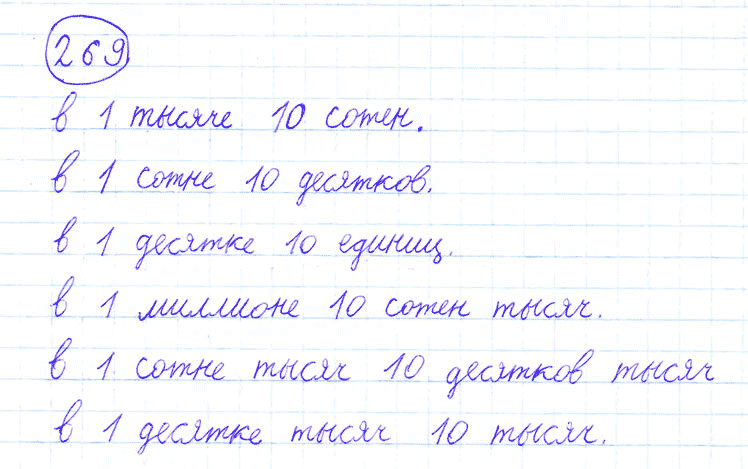 269
в 1 тысяче 10 сотен.
в 1 сотне 10 десятков.
в 1 десятке 10 единиц.
в 1 миллионе 10 сотен тысяч.
в 1 сотне тысяч 10 десятков тысяч
в 1 десятке тысяч 10 тысяч.